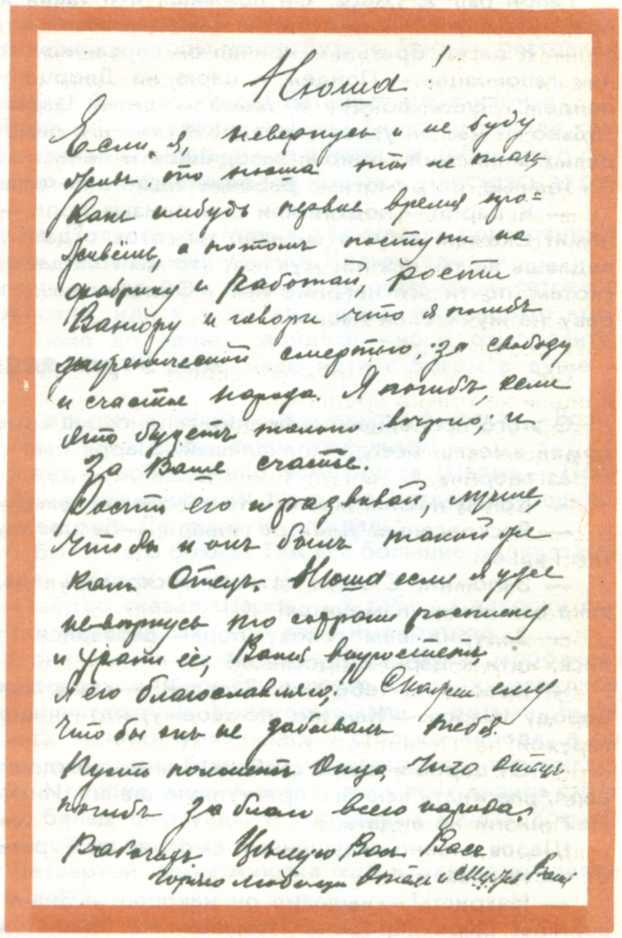 Нюша!
Если я, невернусь и не буду
живъ то тогда ты не плачь
Какъ нибудь первое время про-
живёшь, а потомъ поступи на
фабрику и работай, рости
Ванюру и говори что я погибъ
мученической смертью за свободу
и счастье народа. Я погибъ, если
это будетъ такъ, верно: и
За Ваше счастье.
Рости его и развивай, лучше
Чтобы и онъ былъ такой же
какъ Отецъ. Нюша если я уже
невернусь то собрати
и ея, Ваня выростетъ
я его благославляю. Скажи ему
Что бы онъ не забывалъ тебя
Пусть пойметъ Отца, Чего Отецъ
погибъ за благо всего народа,
рабочихъ Цѣлую Вас. Вась
горячо любящий Отецъ и Мужъ Вашъ